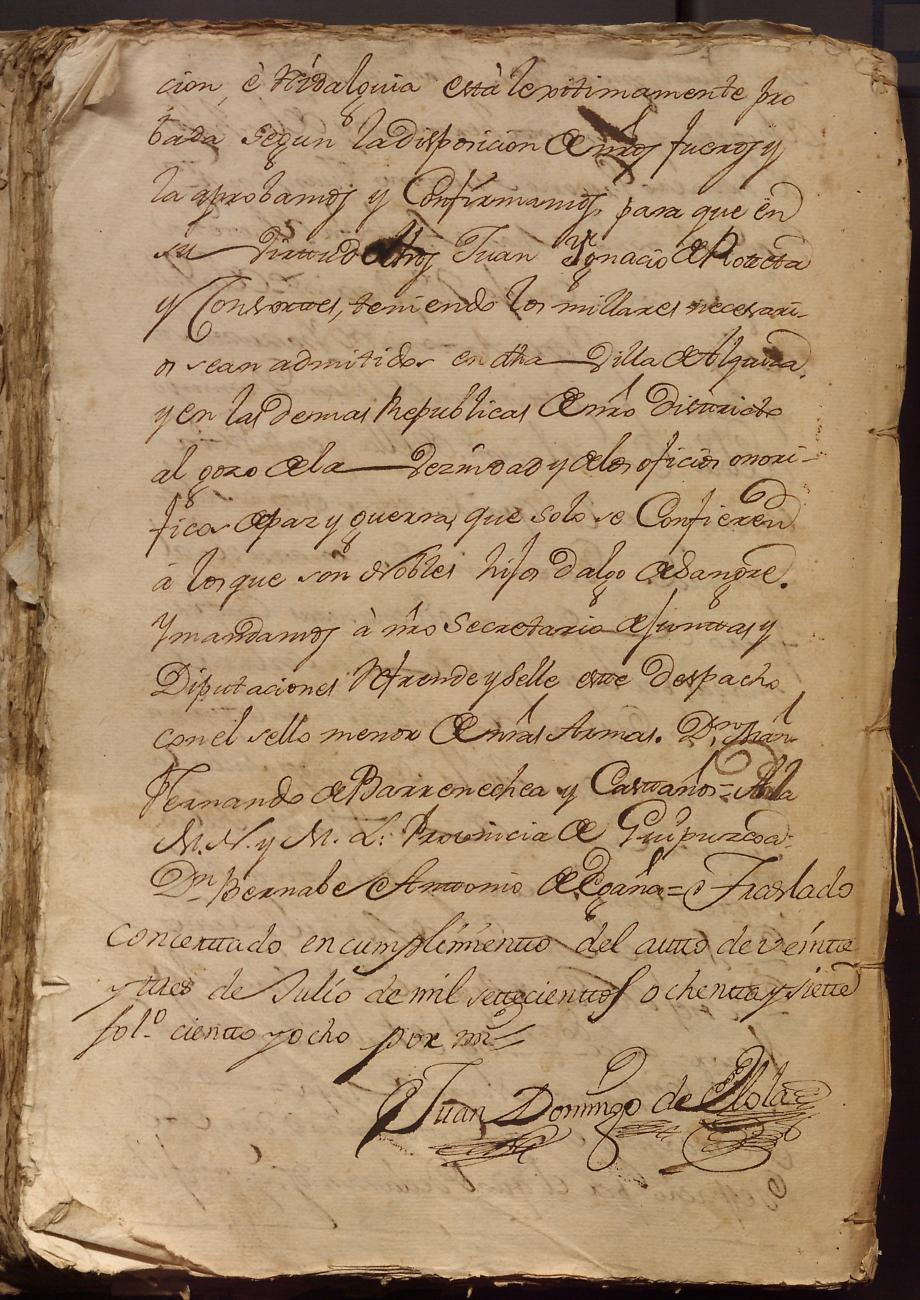 cion, è hidalguia està lexitimamente pro
bada segun la disposicion de nrõs fueros y
la aprobamos y Confirmamos, para que en
su virtud dhos Juan Ygnacio de Roteta
y Consortes, teniendo los millares necesari-
os sean admitidos en dha Villa de Alquiza,
y en las demas Republicas de nrõ districto
al gozo de la vezindad y de los oficios onori-
ficos de paz y guerra, que solo se Confieren
à los que son Nobles hijos dalgo de Sangre.
Y mandamos à nrõ Secretario de juntas y
Diputaciones Refrende y Selle este despacho
con el sello menor de nrãs Armas. Dn
Fernando de Barrenechea y Castaños = Por la
M. N. y M. L. Provincia de Guipuzcoa:
Dn Bernabe Antonio de Egaña = Traslado
concertado en cumplimiento del autto de veintte
y tres de Julio de mil settecienttos ochentta y siette
fol.º ciento y ocho por mi =
Juan Domingo de Olola